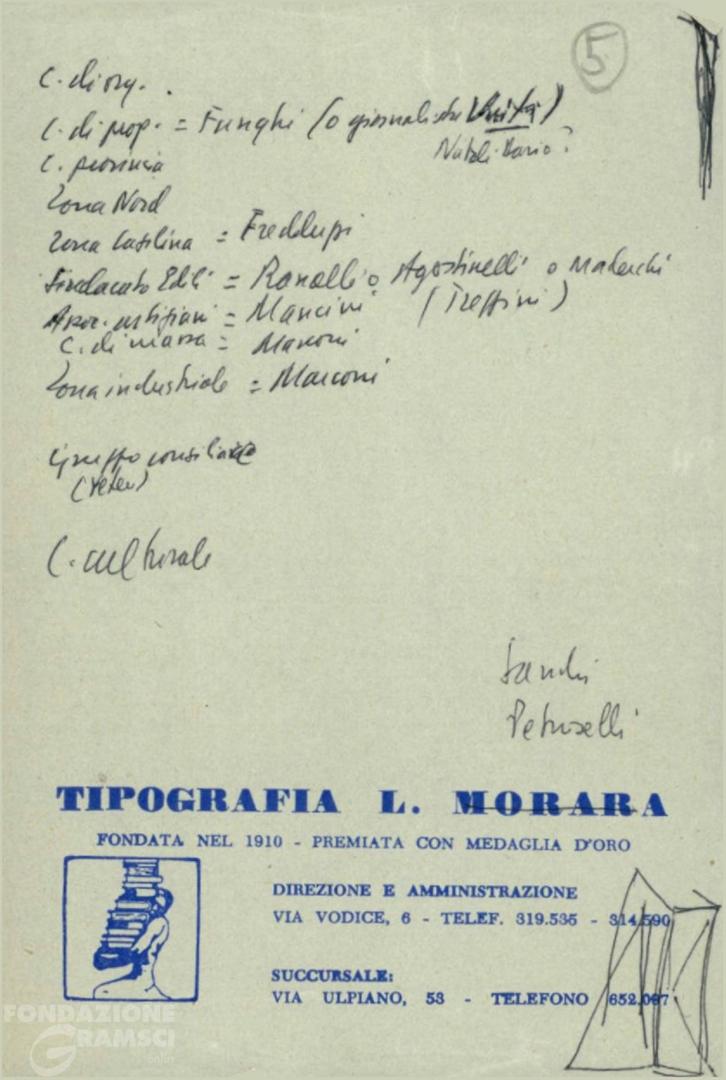 5
C. di org.
C. di prop. = Funghi (o giornalista Unità)
Natali Dario?
C. provincia
Zona Nord
Zona Casilina = Freddupi
Sindacato Edili = Ranalli o Agostinelli o Maderchi
Assoc. artigiani = Mancini (Treffini)
C. di massa = Marroni
Zona industriale = Marconi
Gruppo consiliare
(Vetere)
C. culturale
Sandri
Petroselli
TIPOGRAFIA L. MORARA
FONDATA NEL 1910 - PREMIATA CON MEDAGLIA D'ORO
DIREZIONE E AMMINISTRAZIONE
VIA VODICE, 6 - TELEF. 319.535 - 314.590
SUCCURSALE:
VIA ULPIANO, 53 - TELEFONO 652.097
FONDAZIONE
GRAMSCI